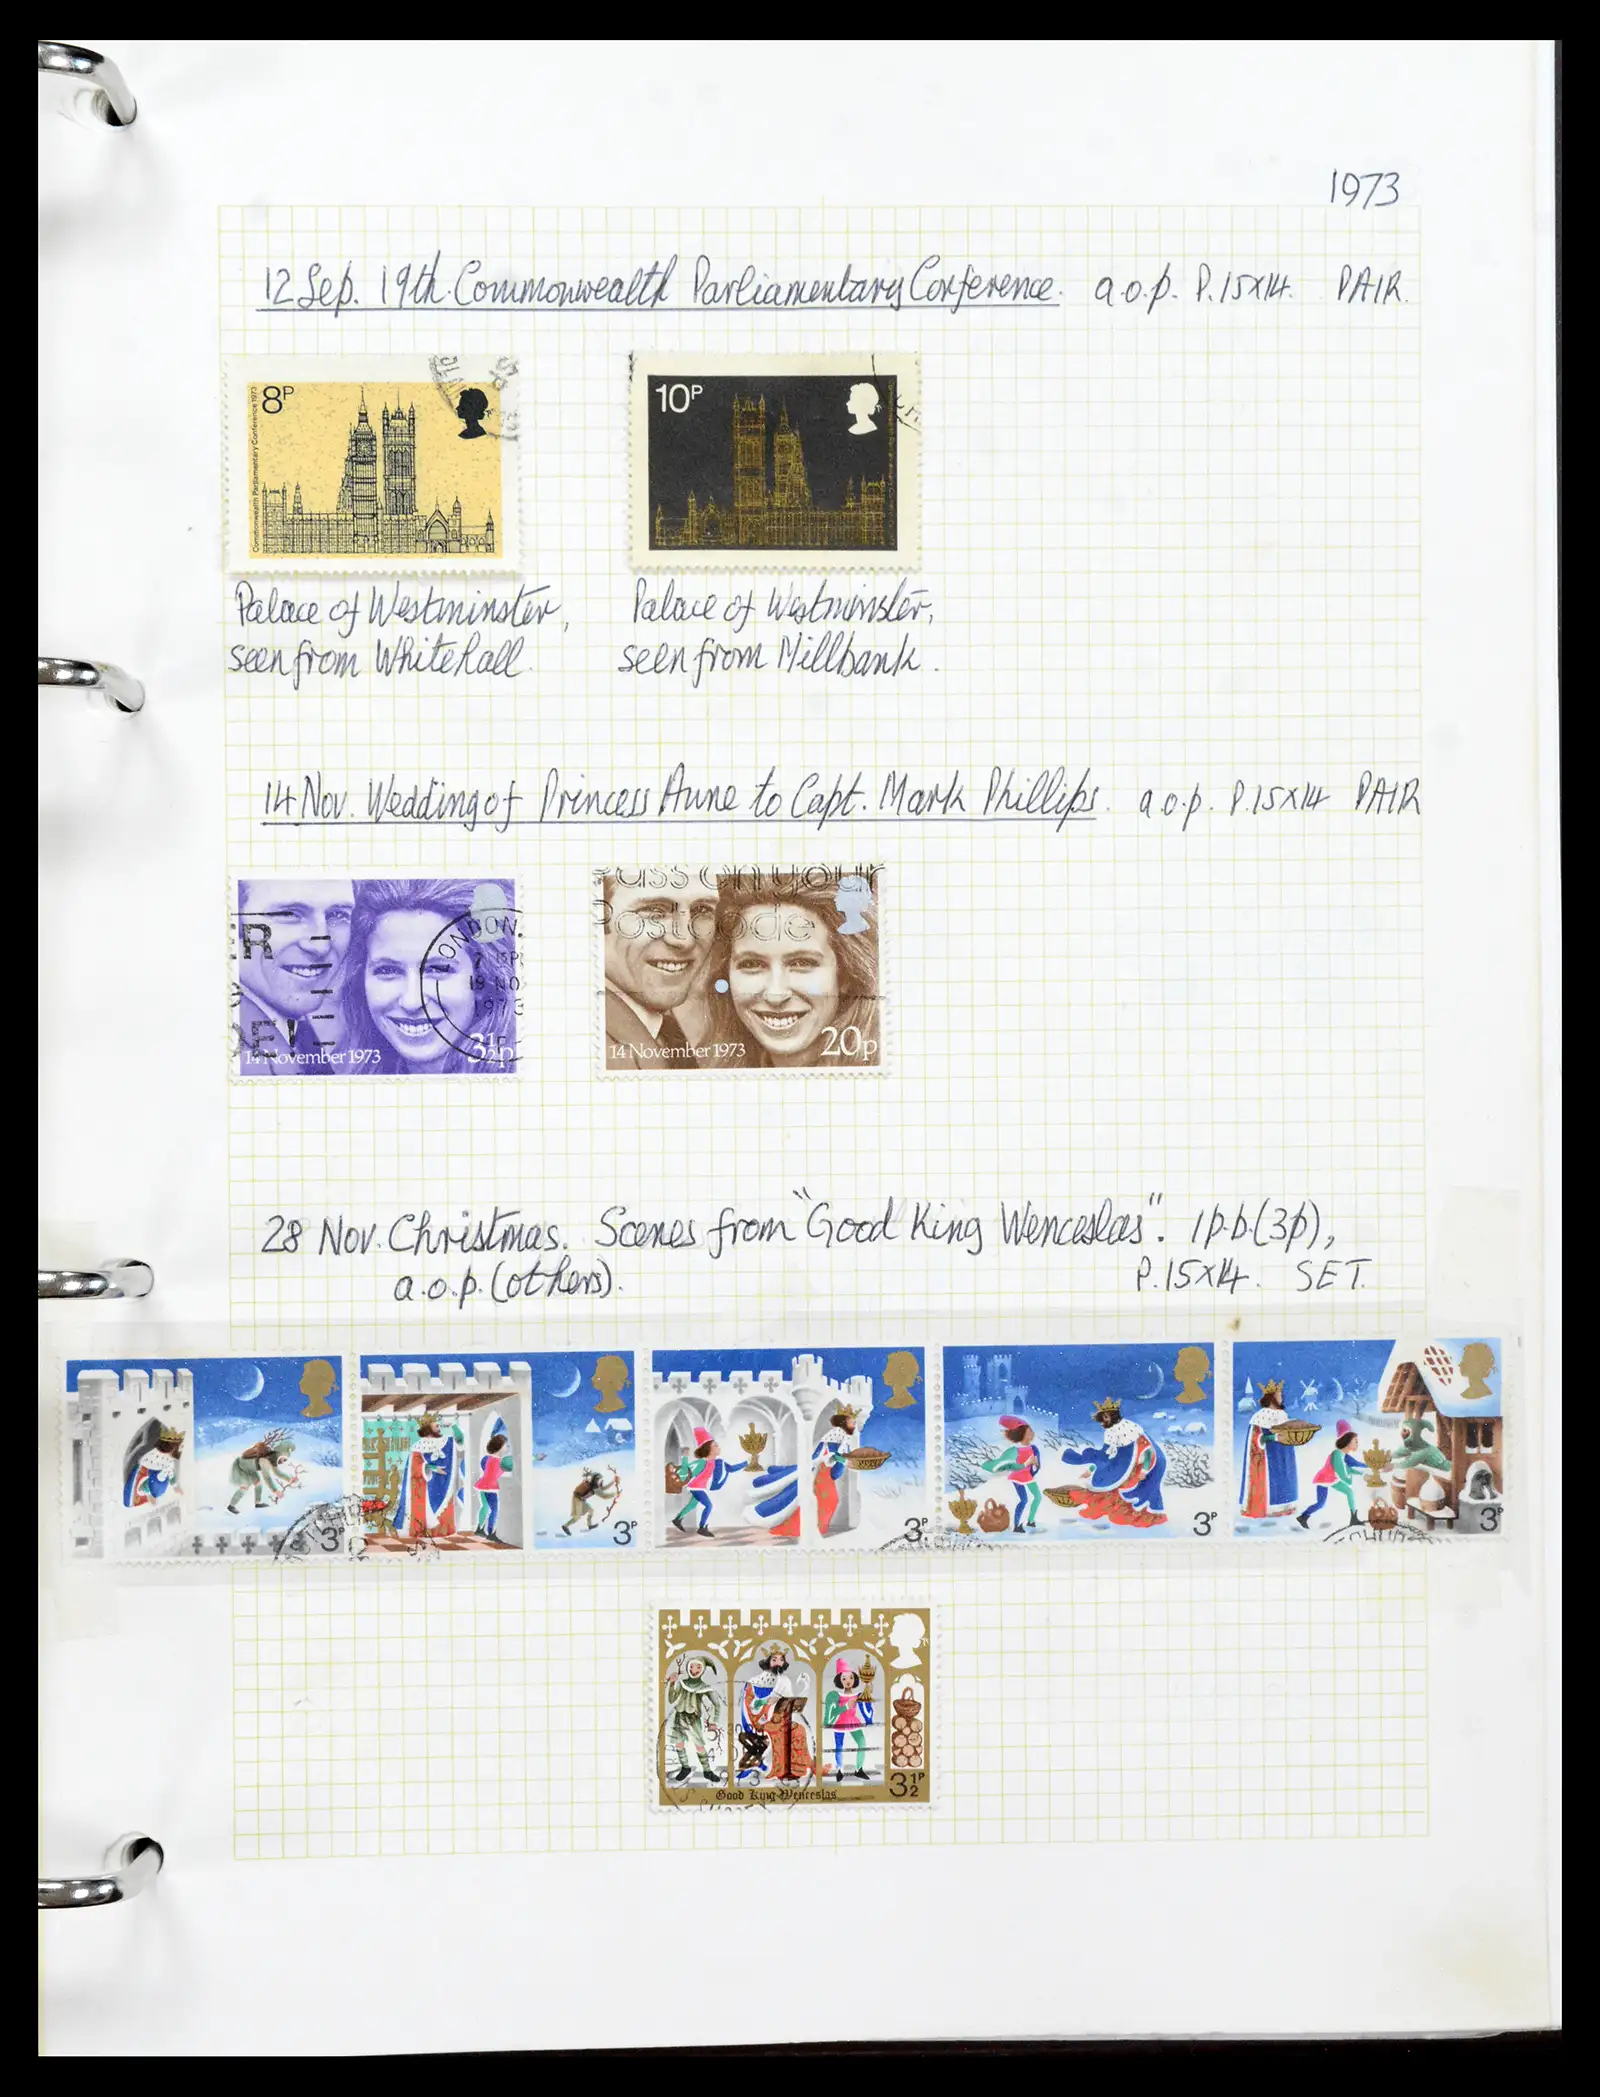 1973
12 Sep. 19th. Commonwealth Parliamentary Conference. a.o.p. P.15x14. PAIR.
8P
Commonwealth Parliamentary Conference 1973
10P
Palace of Westminster,
seen from Whitehall.
Palace of Westminster,
seen from Millbank.
14 Nov. Wedding of Princess Anne to Capt. Mark Phillips. a.o.p. P.15x14 PAIR
LONDON.
19 NO
1973
14 November 1973
3½p
Pass on your
Postcode
14 November 1973
20p
28 Nov. Christmas. Scenes from "Good King Wenceslas". 1p.b.(3p),
a.o.p.(others). P.15x14. SET.
3P 3P 3P 3P 3P
1973
Good King Wenceslas
3½P